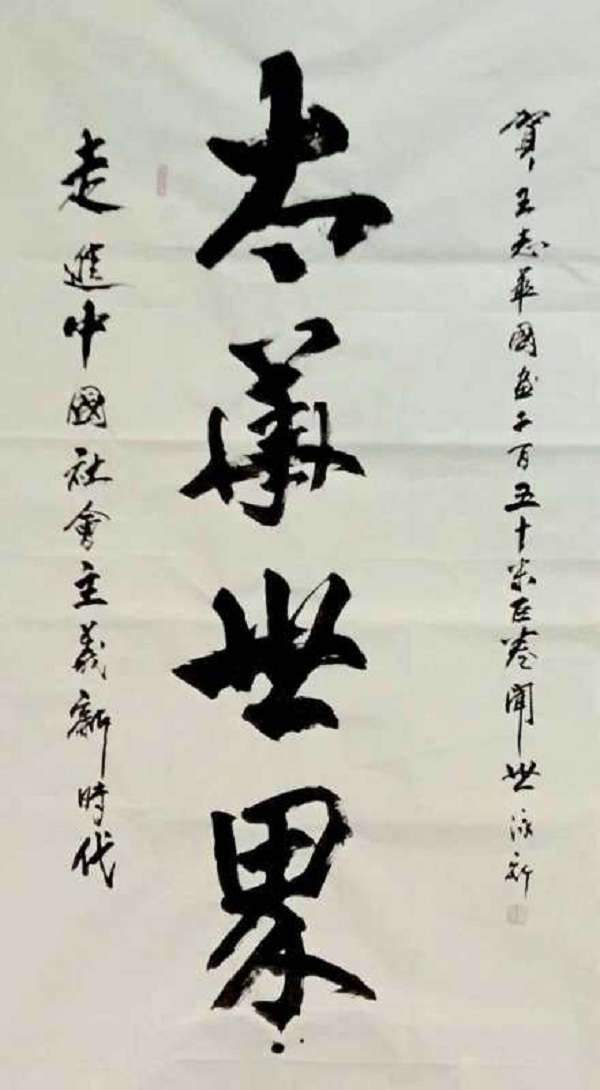 賀王志華國畫千百五十米巨卷聞世 泳新
太華世界
走進中國社會主義新時代